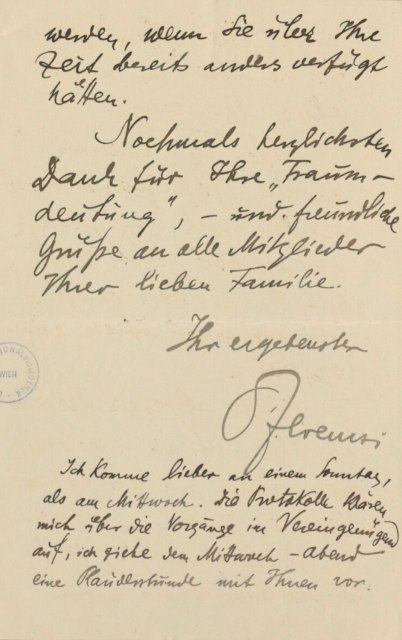 werden, wenn Sie über Ihre
Zeit bereits anders verfügt
hätten.
Nochmals herzlichsten
Dank für Ihre „Traum-
deutung", – und freundliche
Grüße an alle Mitglieder
Ihrer lieben Familie.
Ihr ergebenster
Ferenczi
Ich komme lieber an einem Sonntag,
als am Mittwoch. Die Protokolle klären
mich über die Vorgänge im Verein genügend
auf, ich ziehe dem Mittwoch-Abend
eine Plauderstunde mit Ihnen vor.
WIEN